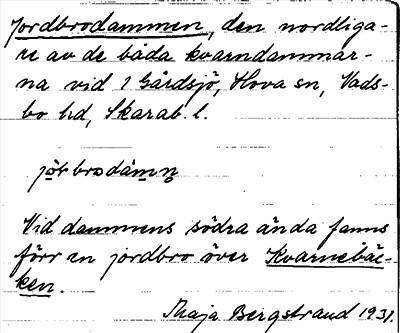 Jordbrodammen, den nordliga-
re av de båda kvarndammar-
na vid 1 Gårdsjö, Hova sn, Vads-
bo hd, Skarab. l.
jo̱rbrodàmn̥
Vid dammens södra ända fanns
förr en jordbro över Kvarnebäc-
ken.
Maja Bergstrand 1931.